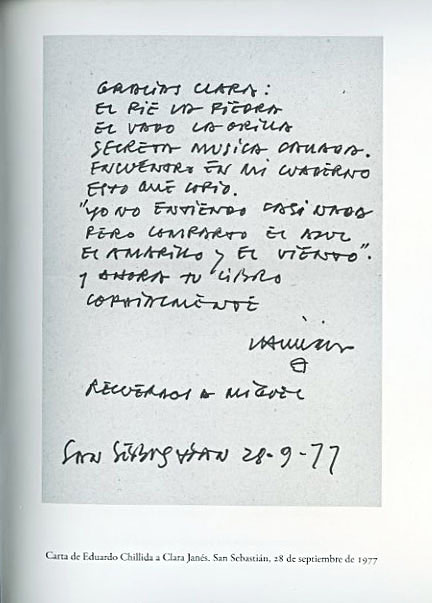 GRACIAS CLARA:
EL PIE LA PIEDRA
EL VADO LA ORILLA
SECRETA MUSICA CALLADA.
ENCUENTRO EN MI CUADERNO
ESTO QUE COPIO.
"YO NO ENTIENDO CASI NADA
PERO COMPARTO EL AZUL
EL AMARILLO Y EL VIENTO".
Y AHORA TU LIBRO
CORDIALMENTE
RECUERDOS A MIGUEL
SAN SEBASTIAN 28-9-77
Carta de Eduardo Chillida a Clara Janés. San Sebastián, 28 de septiembre de 1977